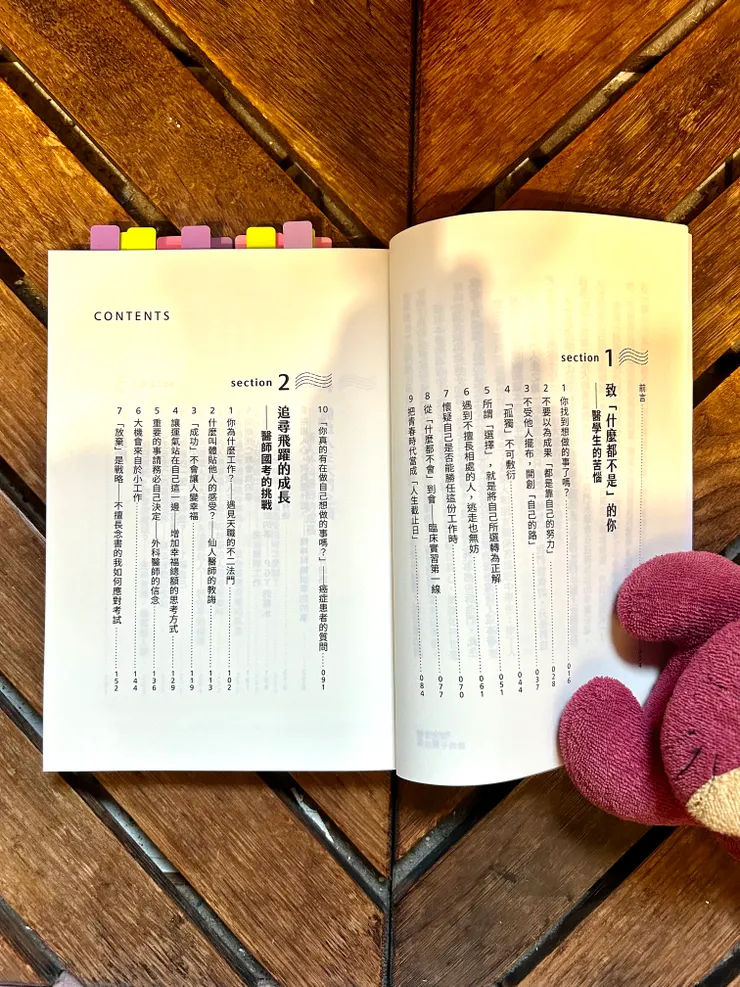 前言
section 1
致「什麼都不是」的你
——醫學生的苦惱
1 你找到想做的事了嗎？ 016
2 不要以為成果「都是靠自己的努力」 028
3 不受他人擺布，開創「自己的路」 037
4 「孤獨」不可敷衍 044
5 所謂「選擇」，就是將自己所選轉為正解 051
6 遇到不擅長相處的人，逃走也無妨 061
7 懷疑自己是否能勝任這份工作時 070
8 從「什麼都不會」到會——臨床實習第一線 077
9 把青春時代當成「人生截止日」 084
CONTENTS
10 「你真的有在做自己想做的事嗎？」——癌症患者的質問 091
section 2
追尋飛躍的成長
——醫師國考的挑戰
1 你為什麼工作？——遇見天職的不二法門 102
2 什麼叫體貼他人的感受？——仙人醫師的教誨 113
3 「成功」不會讓人變幸福 119
4 讓運氣站在自己這一邊——增加幸福總額的思考方式 129
5 重要的事請務必自己決定——外科醫師的信念 136
6 大機會來自於小工作 144
7 「放棄」是戰略——不擅長念書的我如何應對考試 152